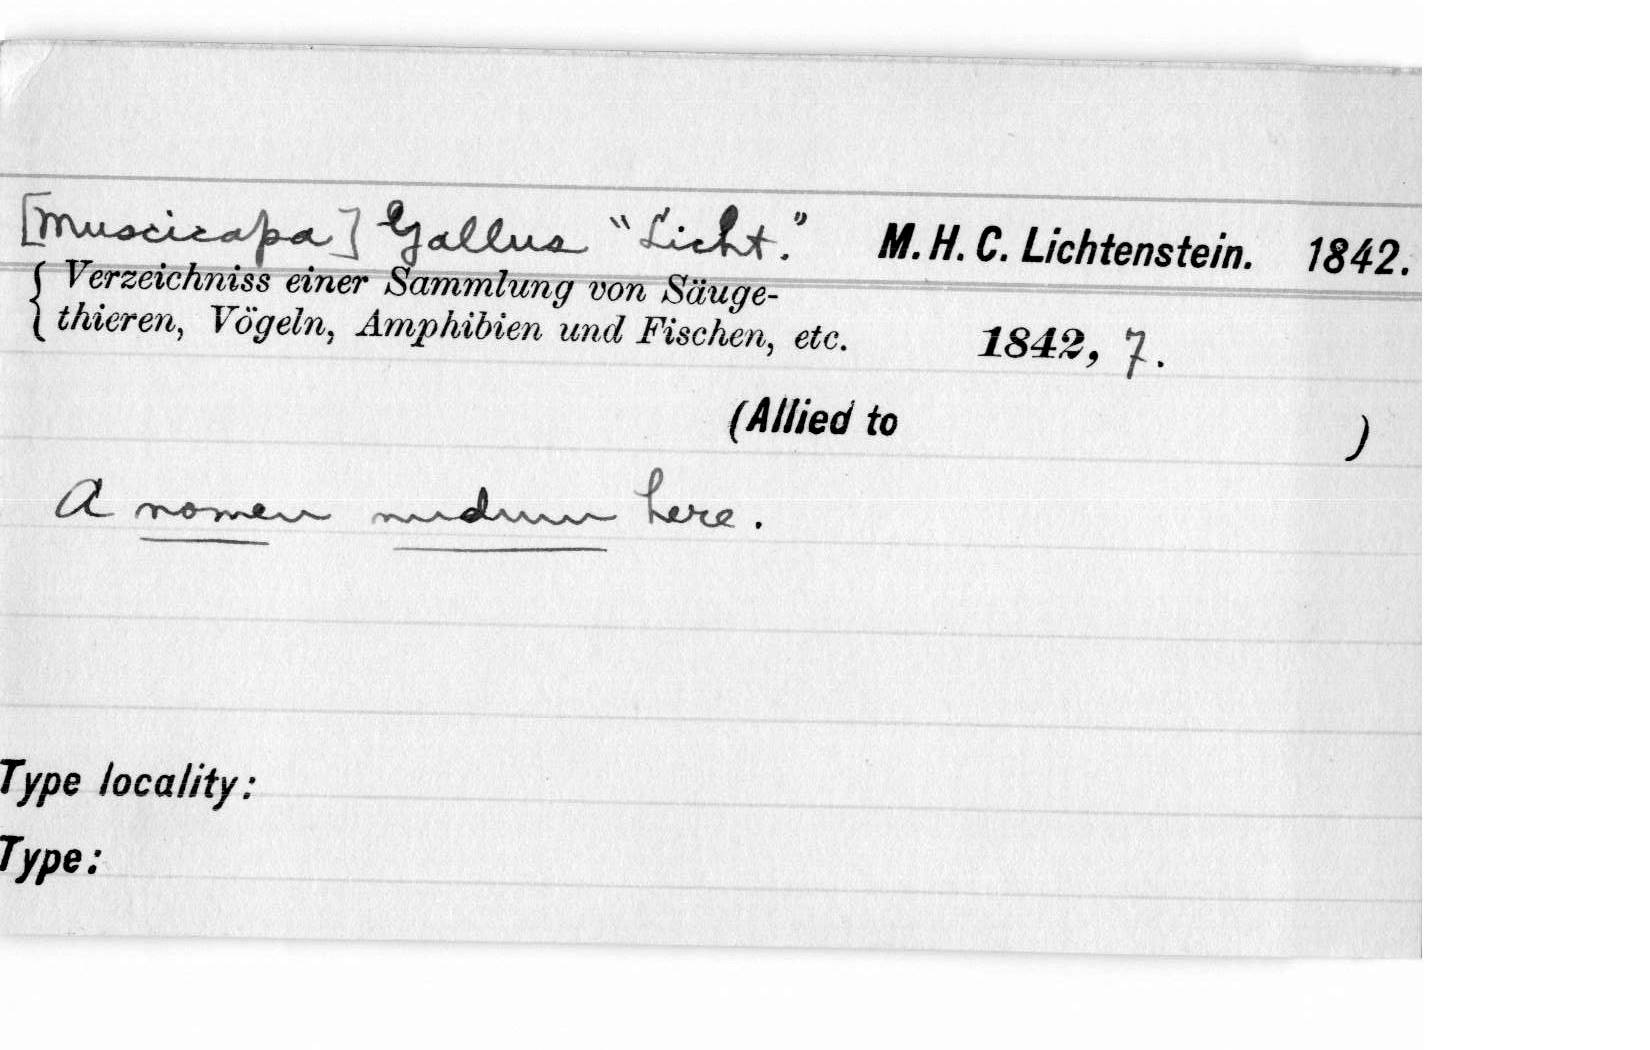 [Muscicapa] Gallus "Licht." M. H. C. Lichtenstein. 1842.
Verzeichniss einer Sammlung von Säuge-
thieren, Vögeln, Amphibien und Fischen, etc. 1842, 7.
(Allied to )
A nomen nudum here.
Type locality:
Type: